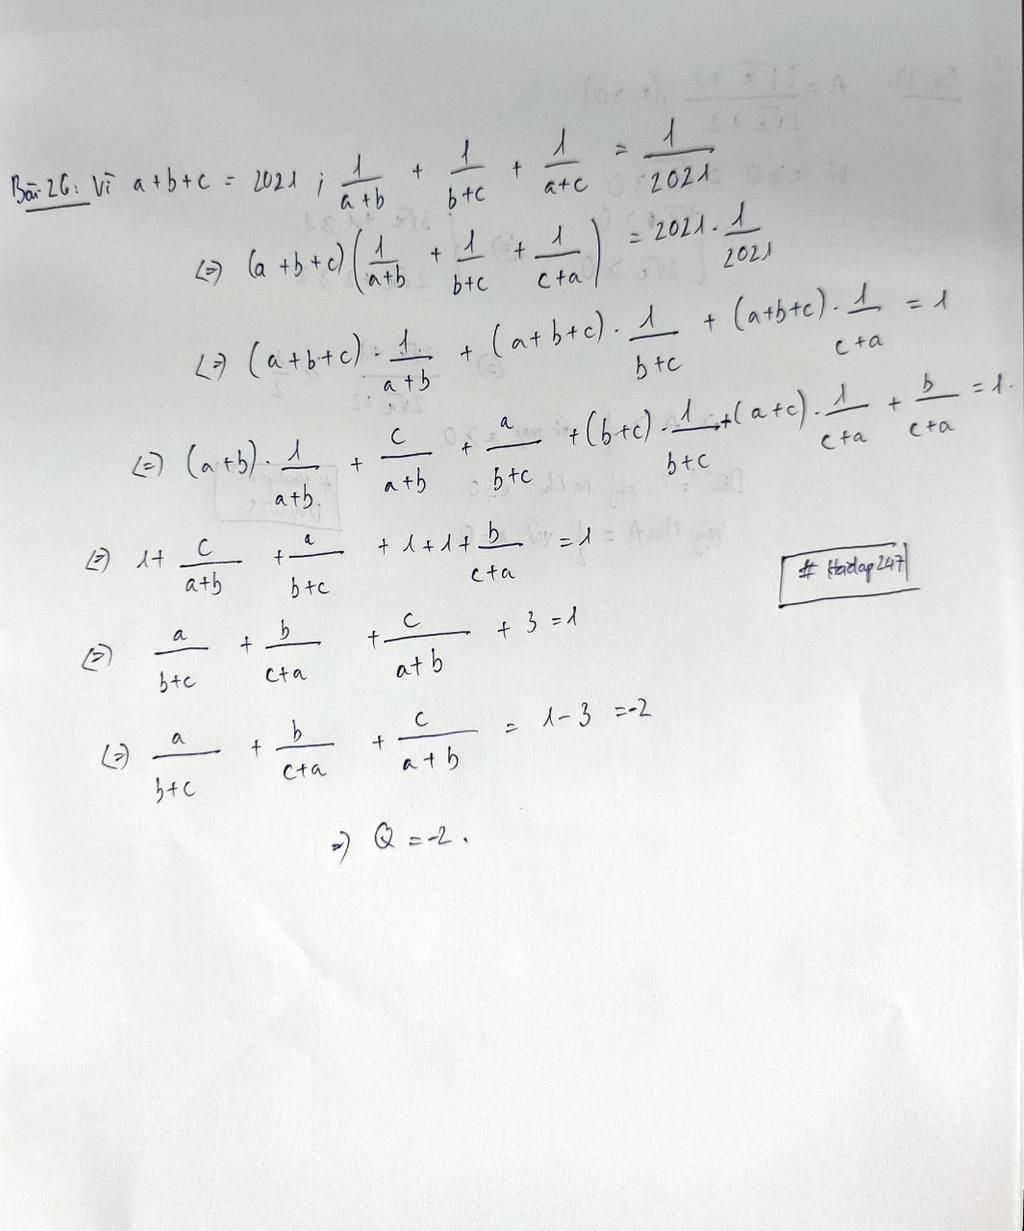 Bài 26: Vì a+b+c = 2021 ; 1/(a+b) + 1/(b+c) + 1/(a+c) = 1/2021
(=) (a+b+c)(1/(a+b) + 1/(b+c) + 1/(c+a)) = 2021 . 1/2021
(=) (a+b+c) . 1/(a+b) + (a+b+c) . 1/(b+c) + (a+b+c) . 1/(c+a) = 1
(=) (a+b) . 1/(a+b) + c/(a+b) + a/(b+c) + (b+c) . 1/(b+c) + (a+c) . 1/(c+a) + b/(c+a) = 1.
(=) 1 + c/(a+b) + a/(b+c) + 1 + 1 + b/(c+a) = 1
# Hoidap247
(=) a/(b+c) + b/(c+a) + c/(a+b) + 3 = 1
(=) a/(b+c) + b/(c+a) + c/(a+b) = 1-3 = -2
=) Q = -2.